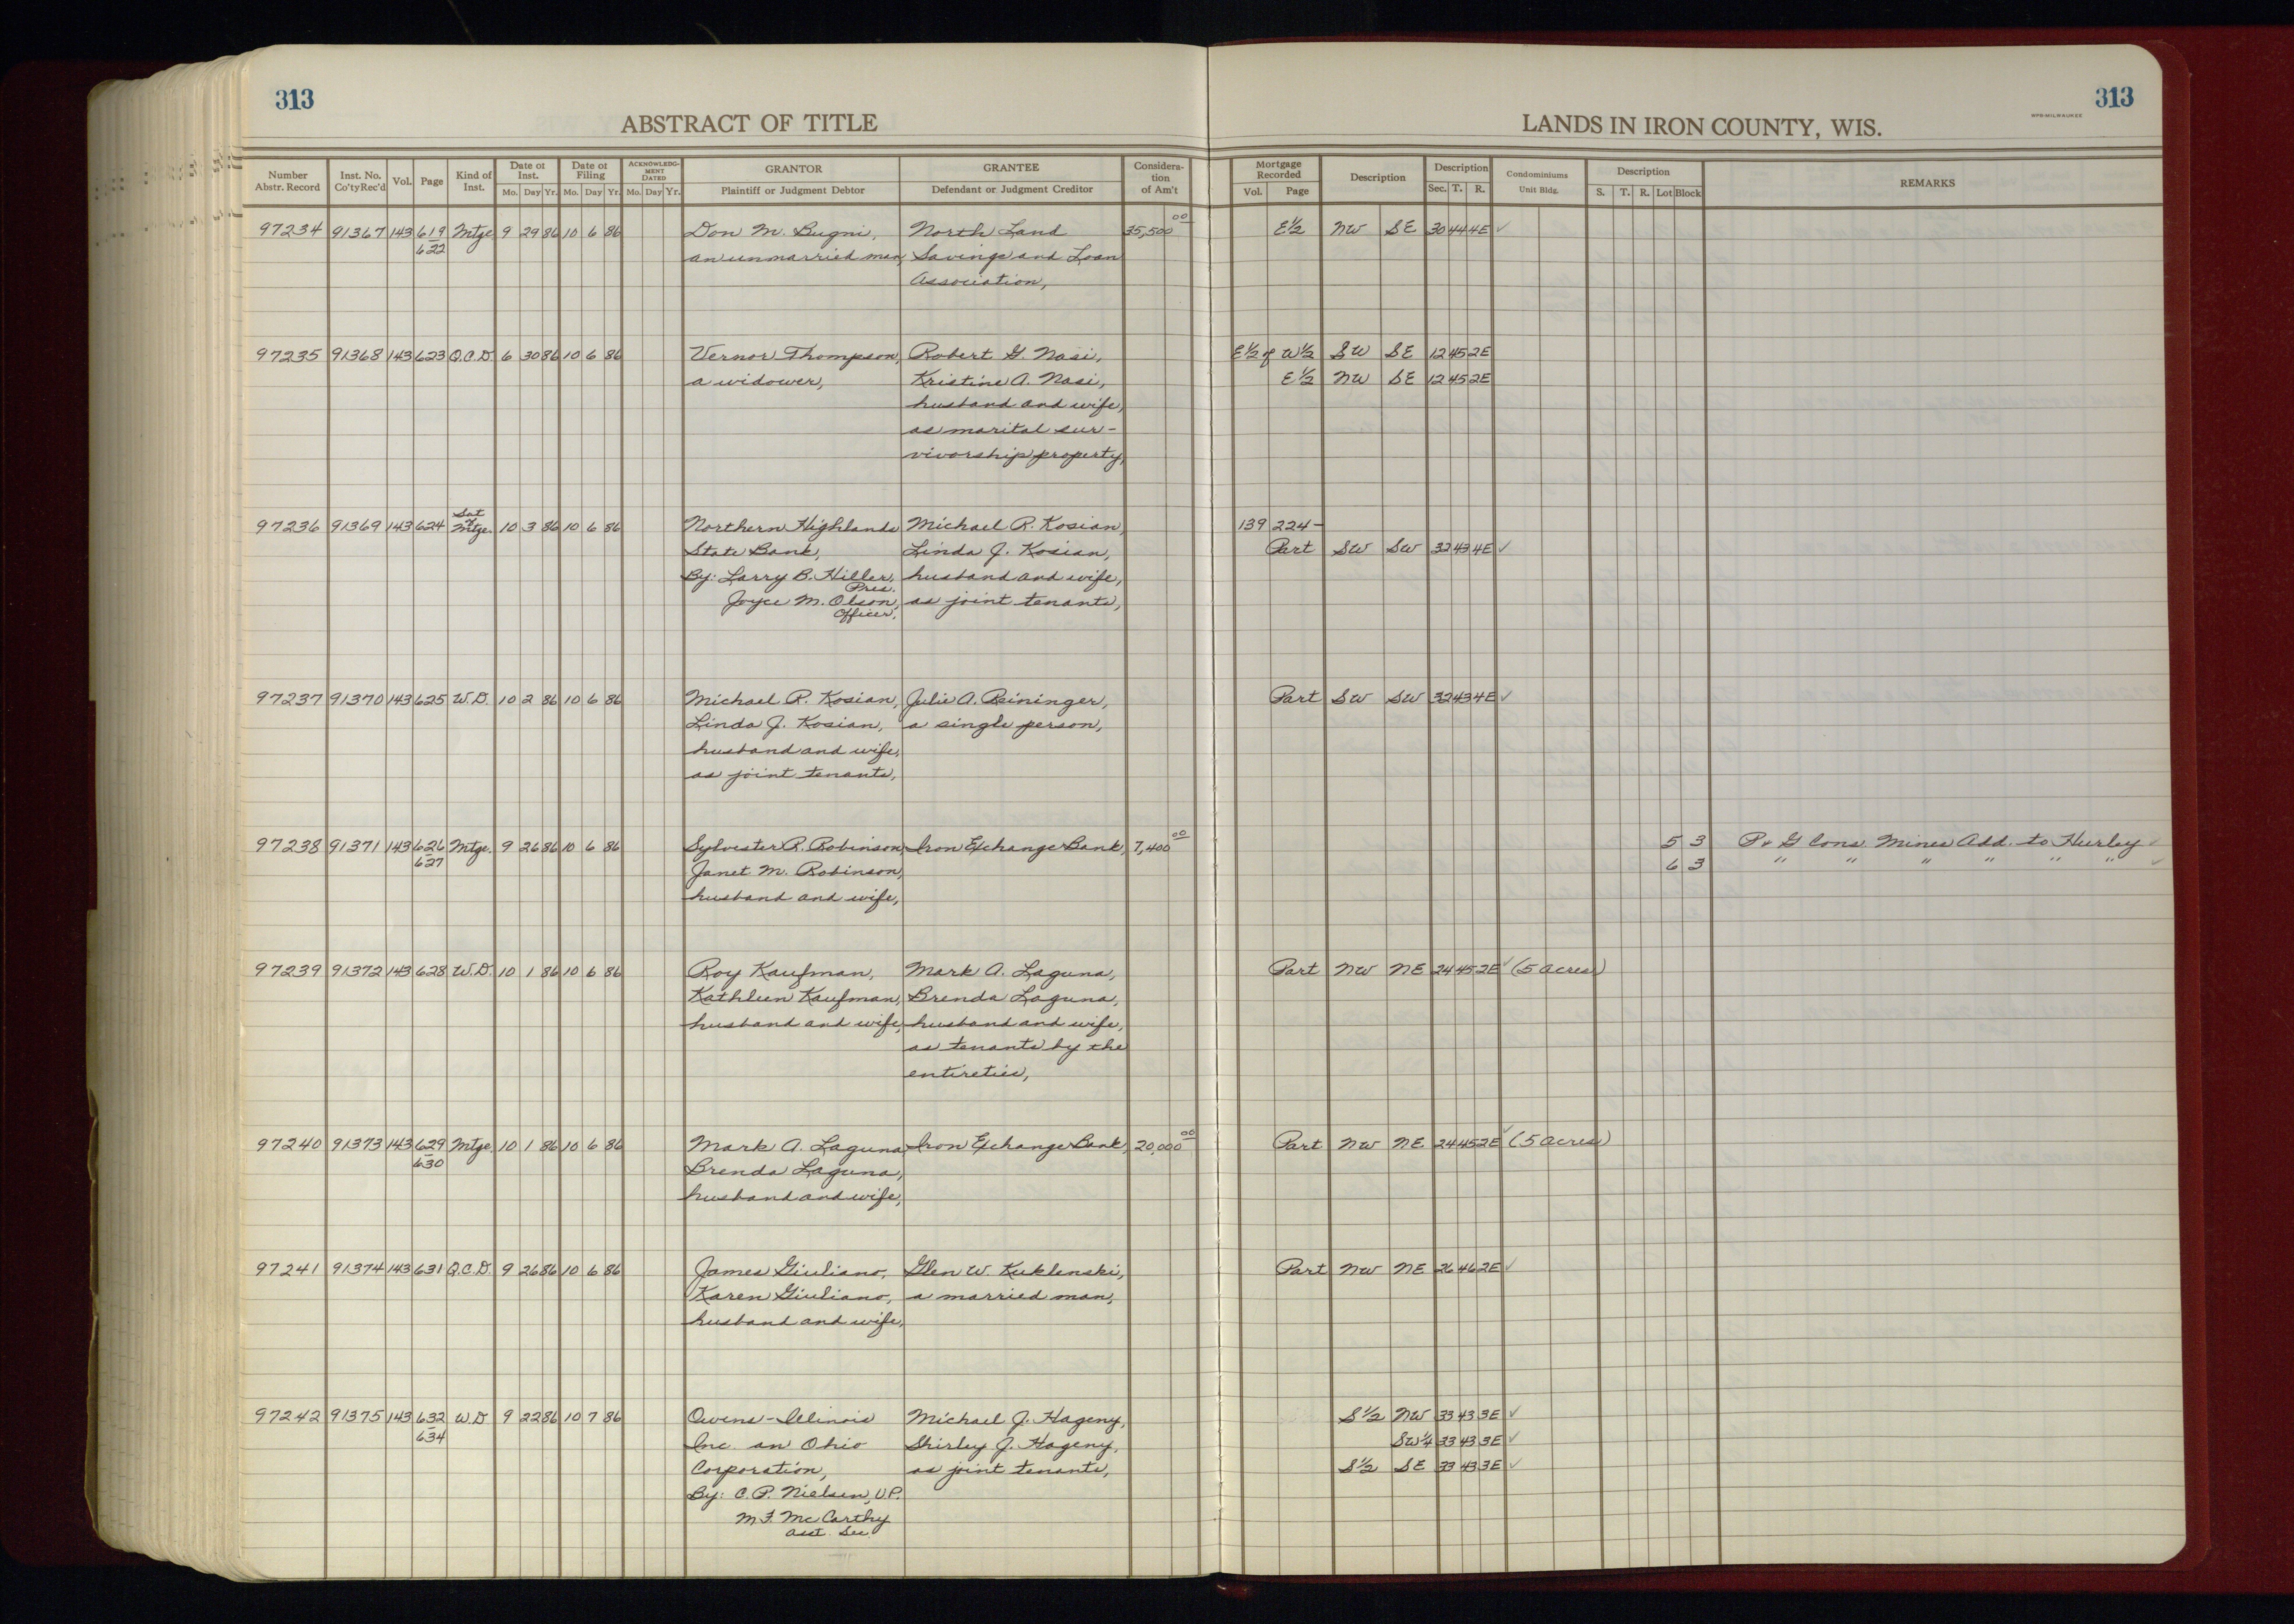 313
313
ABSTRACT OF TITLE
LANDS IN IRON COUNTY, WIS.
WPB-MILWAUKEE
Number Abstr. Record | Inst. No. Co'ty Rec'd | Vol. | Page | Kind of Inst. | Date of Inst. Mo. Day Yr. | Date of Filing Mo. Day Yr. | ACKNOWLEDGMENT DATED Mo. Day Yr. | GRANTOR Plaintiff or Judgment Debtor | GRANTEE Defendant or Judgment Creditor | Consideration of Am't | Mortgage Recorded Vol. Page | Description | Description Sec. T. R. | Condominiums Unit Bldg. | Description S. T. R. Lot Block | REMARKS
97234 91367 143 619 Mtge 9 29 86 10 6 86 Don M. Bugni, North Land 35,500 00 E½ NW SE 30 44 4E ✓
622 an unmarried man, Savings and Loan
Association,
97235 91368 143 623 Q.C.D. 6 30 86 10 6 86 Vernor Thompson, Robert G. Nasi, E½ of W½ SW SE 12 45 2E
a widower, Kristine A. Nasi, E½ NW SE 12 45 2E
husband and wife,
as marital sur-
vivorship property,
97236 91369 143 624 Sat of Mtge. 10 3 86 10 6 86 Northern Highlands Michael R. Kosian, 139 224-
State Bank, Linda J. Kosian, Part SW SW 32 43 4E ✓
By: Larry B. Hiller, husband and wife,
Pres.
Joyce M. Olson, as joint tenants,
Officer,
97237 91370 143 625 W.D. 10 2 86 10 6 86 Michael R. Kosian, Julie A. Reininger, Part SW SW 32 43 4E ✓
Linda J. Kosian, a single person,
husband and wife,
as joint tenants,
97238 91371 143 626 Mtge. 9 26 86 10 6 86 Sylvester R. Robinson, Iron Exchange Bank, 7,400 00 5 3 P & G Cons. Mines Add. to Hurley ✓
627 Janet M. Robinson, 6 3 " " " " " " ✓
husband and wife,
97239 91372 143 628 W.D. 10 1 86 10 6 86 Roy Kaufman, Mark A. Laguna, Part NW NE 24 45 2E ✓ (5 acres)
Kathleen Kaufman, Brenda Laguna,
husband and wife, husband and wife,
as tenants by the
entireties,
97240 91373 143 629 Mtge. 10 1 86 10 6 86 Mark A. Laguna, Iron Exchange Bank, 20,000 00 Part NW NE 24 45 2E ✓ (5 acres)
630 Brenda Laguna,
husband and wife,
97241 91374 143 631 Q.C.D. 9 26 86 10 6 86 James Giuliano, Glen W. Kuklenski, Part NW NE 26 46 2E ✓
Karen Giuliano, a married man,
husband and wife,
97242 91375 143 632 W.D 9 22 86 10 7 86 Owens-Illinois Michael J. Hageny, S½ NW 33 43 3E ✓
634 Inc. an Ohio Shirley J. Hageny, SW¼ 33 43 3E ✓
Corporation, as joint tenants, S½ SE 33 43 3E ✓
By: C.P. Nielsen, V.P.
M F. McCarthy
Asst. Sec.